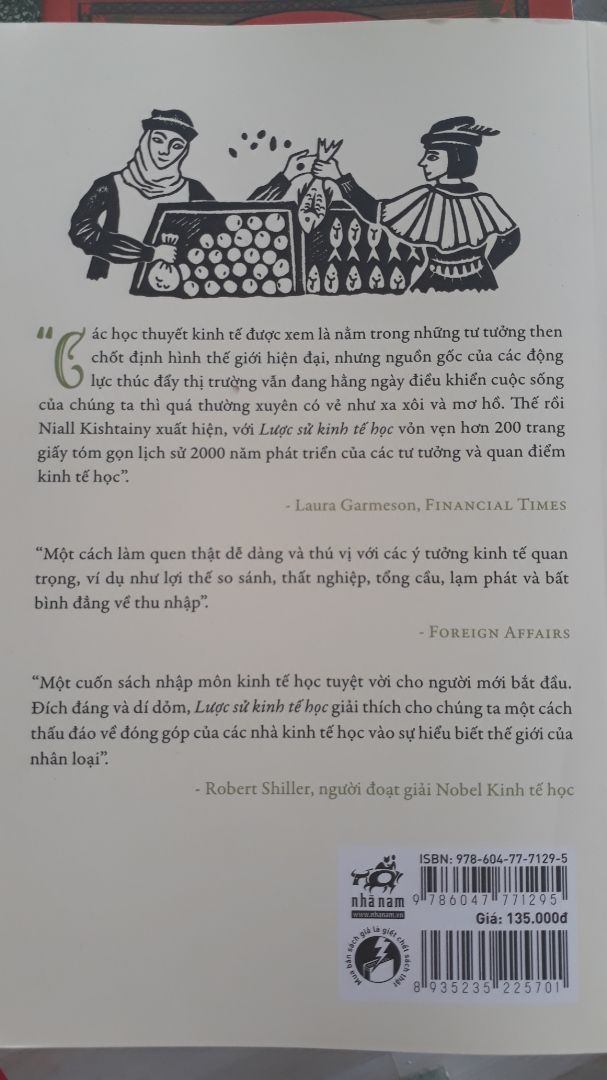 “Các học thuyết kinh tế được xem là nằm trong những tư tưởng then
chốt định hình thế giới hiện đại, nhưng nguồn gốc của các động
lực thúc đẩy thị trường vẫn đang hằng ngày điều khiển cuộc sống
của chúng ta thì quá thường xuyên có vẻ như xa xôi và mơ hồ. Thế rồi
Niall Kishtainy xuất hiện, với Lược sử kinh tế học vỏn vẹn hơn 200 trang
giấy tóm gọn lịch sử 2000 năm phát triển của các tư tưởng và quan điểm
kinh tế học”.
- Laura Garmeson, FINANCIAL TIMES
“Một cách làm quen thật dễ dàng và thú vị với các ý tưởng kinh tế quan
trọng, ví dụ như lợi thế so sánh, thất nghiệp, tổng cầu, lạm phát và bất
bình đẳng về thu nhập”.
- FOREIGN AFFAIRS
“Một cuốn sách nhập môn kinh tế học tuyệt vời cho người mới bắt đầu.
Đích đáng và dí dỏm, Lược sử kinh tế học giải thích cho chúng ta một cách
thấu đáo về đóng góp của các nhà kinh tế học vào sự hiểu biết thế giới của
nhân loại”.
- Robert Shiller, người đoạt giải Nobel Kinh tế học
nhã nam
www.nhanam.vn
Mua bán sách giả là giết chết sách thật
ISBN: 978-604-77-7129-5
9 786047 771295
Giá: 135.000đ
8 935235 225701